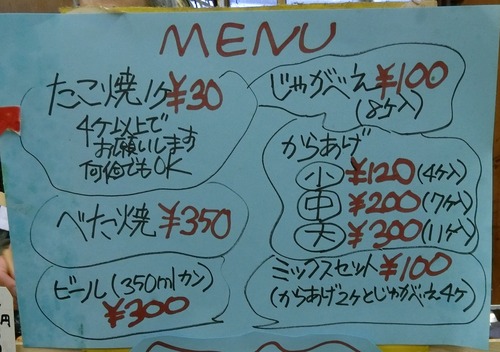 MENU
たこ焼1ケ¥30
4ケ以上で
お願いします
何倍でもOK
べた焼¥350
ビール(350mlカン)
¥300
じゃがべえ¥100
(8ケ入)
からあげ
小 ¥120(4ケ入)
中 ¥200(7ケ入)
大 ¥300(11ケ入)
ミックスセット¥100
(からあげ2ケとじゃがべえ4ケ)
円